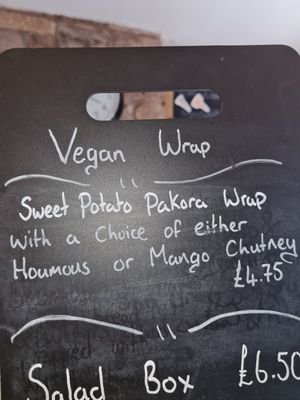 Vegan Wrap
Sweet Potato Pakora Wrap
with a choice of either
Houmous or Mango Chutney
£4.75
Salad Box £6.50